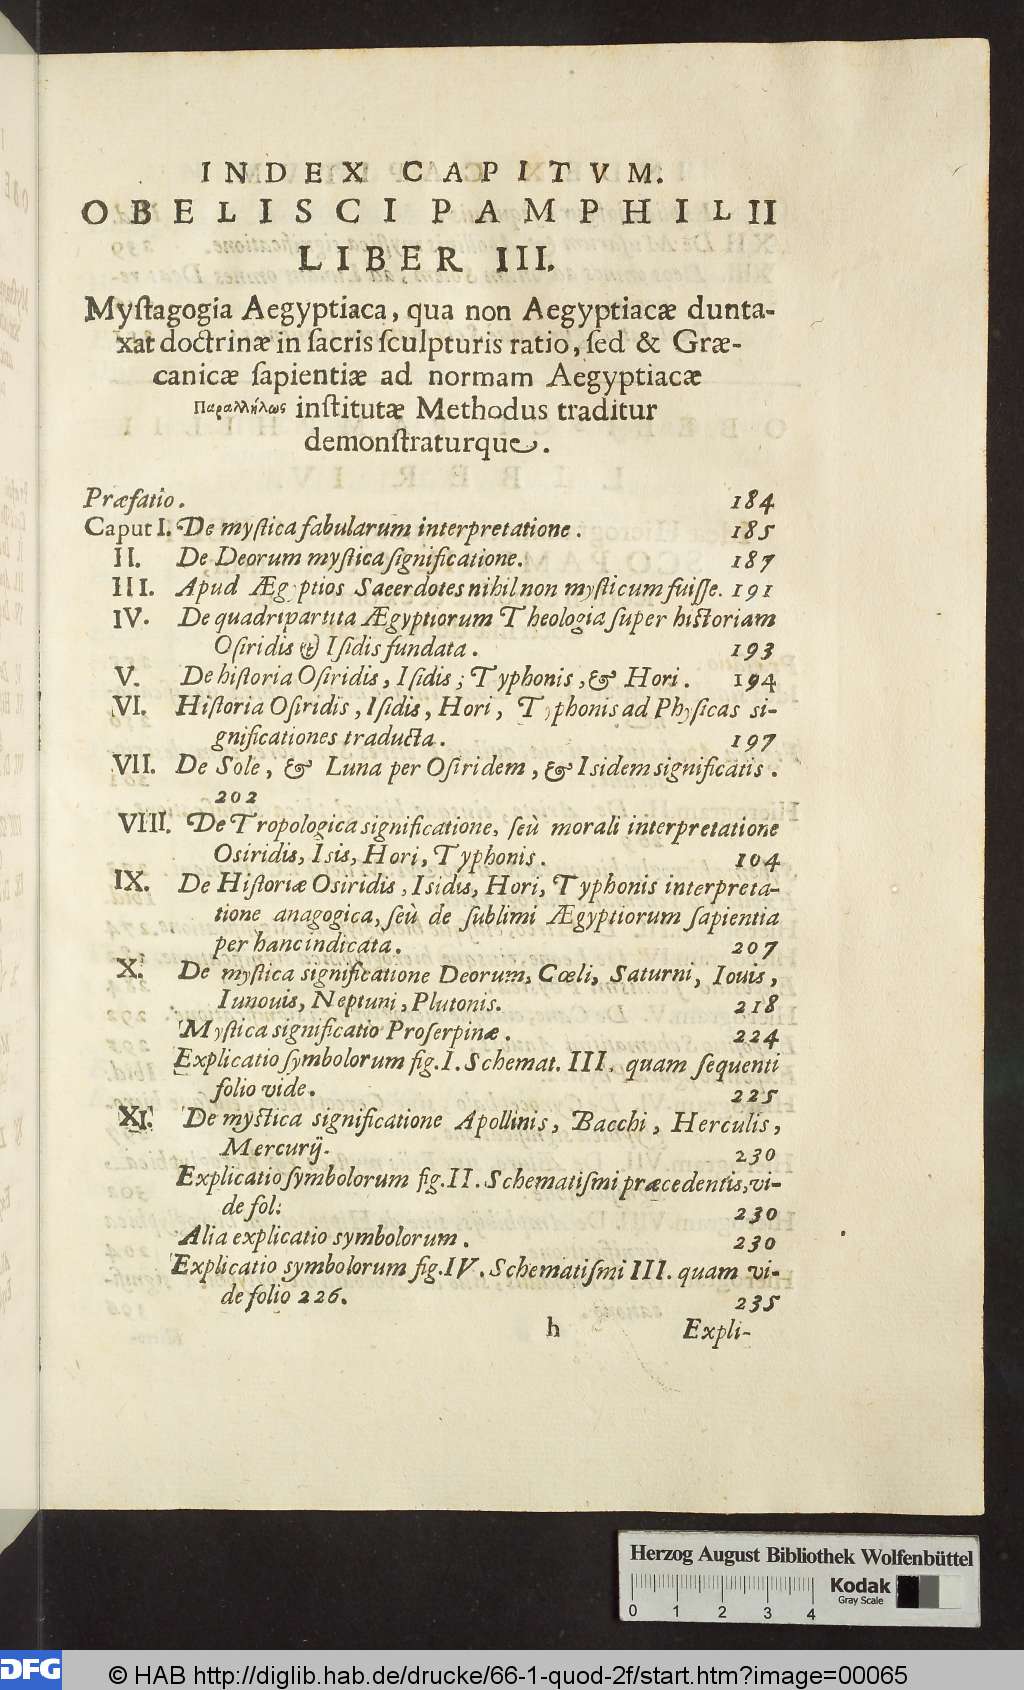 INDEX CAPITVM.
OBELISCI PAMPHILII
LIBER III.
Myſtagogia Aegyptiaca, qua non Aegyptiacæ dunta-
xat doctrinæ in ſacris ſculpturis ratio, ſed & Græ-
canicæ ſapientiæ ad normam Aegyptiacæ
Παραλλήλως inſtitutæ Methodus traditur
demonſtraturque.
Præfatio. 184
Caput I. De myſtica fabularum interpretatione. 185
II. De Deorum myſtica ſignificatione. 187
III. Apud Ægyptios Sacerdotes nihil non myſticum fuiſſe. 191
IV. De quadripartita Ægyptiorum Theologia ſuper hiſtoriam
Oſiridis & Iſidis fundata. 193
V. De hiſtoria Oſiridis, Iſidis; Typhonis, & Hori. 194
VI. Hiſtoria Oſiridis, Iſidis, Hori, Typhonis ad Phyſicas si-
gnificationes traducta. 197
VII. De Sole, & Luna per Oſiridem, & Isidem significatis.
202
VIII. De Tropologica significatione, ſeù morali interpretatione
Osiridis, Isis, Hori, Typhonis. 104
IX. De Hiſtoriæ Osiridis, Isidis, Hori, Typhonis interpreta-
tione anagogica, ſeù de ſublimi Ægyptiorum ſapientia
per hanc indicata. 207
X. De myſtica significatione Deorum, Cœli, Saturni, Iouis,
Iunouis, Neptuni, Plutonis. 218
Myſtica significatio Proſerpinæ. 224
Explicatio ſymbolorum fig. I. Schemat. III. quam ſequenti
folio vide. 225
XI. De myſtica significatione Apollinis, Bacchi, Herculis,
Mercurij. 230
Explicatio ſymbolorum fig. II. Schematiſmi præcedentis, vi-
de fol: 230
Alia explicatio symbolorum. 230
Explicatio symbolorum fig. IV. Schematiſmi III. quam vi-
de folio 226. 235
h Expli-
Herzog August Bibliothek Wolfenbüttel
Kodak
Gray Scale
0 1 2 3 4
DFG © HAB http://diglib.hab.de/drucke/66-1-quod-2f/start.htm?image=00065